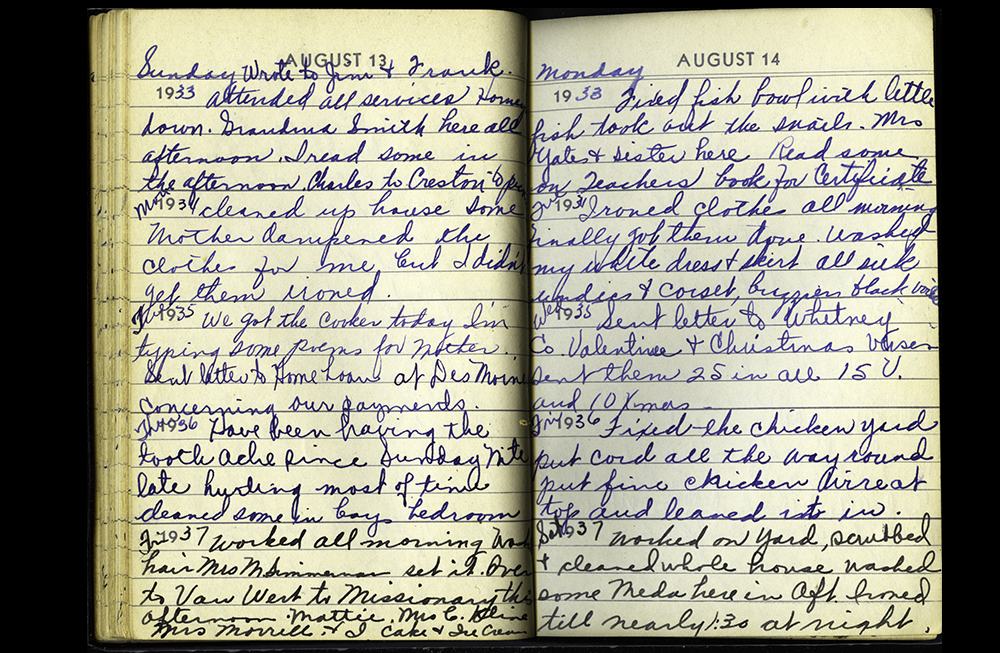 AUGUST 13
Sunday Wrote to Jim & Frank.
1933 attended all services Home
down. Grandma Smith here all
afternoon. I read some in
the afternoon. Charles to Creston to
Mon 1934 cleaned up house some
Mother dampened the
clothes for me but I didn't
get them ironed.
1935 We got the cooker today I'm
typing some poems for Mother.
Sent letter to Home Loan at Des Moines
concerning our payments.
Th 1936 Have been having the
tooth ache since Sunday Nite
late hurting most of time
cleaned some in boys bedroom
Fri 1937 Worked all morning Wash
hair Mrs M Zimmerman set it. Over
to Van Wert to Missionary this
afternoon. Mattie, Mrs C. Kline
Mrs Morrill & I Cake & Ice Cream
AUGUST 14
Monday
1933 Fixed fish bowl with little
fish took out the snails. Mrs
Yates & sister here Read some
on Teachers book for Certificate
1934 Ironed clothes all morning
finally got them done. Washed
my white dress & skirt all silk
undies & corset, black
Wed 1935 Sent letter to Whitney
Co. Valentine & Christmas verses
sent them 25 in all 15 V.
and 10 Xmas
Fri 1936 Fixed the chicken yard
put cord all the way round
put fine chicken wire at
top and leaned it in.
Sat 1937 Worked on yard, scrubbed
& cleaned whole house washed
some Meda here in Aft. Ironed
till nearly 1:30 at night.